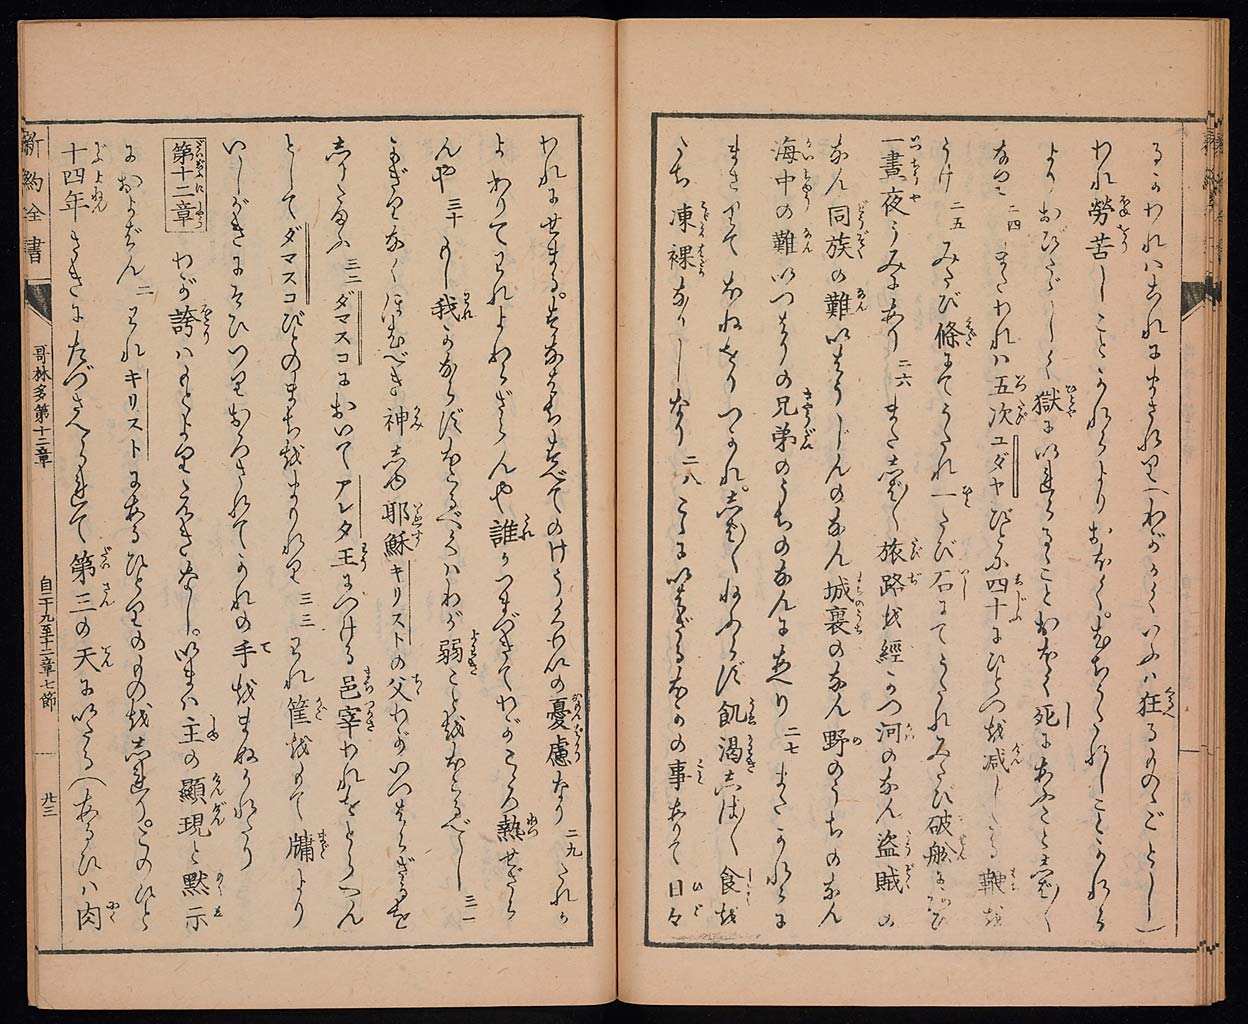 るかわれハこれにまされり(わがかくいふハ狂るものゝごとし)
われ勞苦しことかれらよりおほく。むちうたれしことかれら
よりおびたゞしく獄にいれらるゝことおほく死にあふことしば〱
なりき 二四 またわれハ五次ユダヤびとに四十にひとつを減したる鞭を
うけ 二五 みたび條にてうたれ一たび石にてうたれみたび破舩にあひ
一晝夜うみにあり 二六 またしば〱旅路を經かつ河のなん盜賊の
なん同族の難いはうじんのなん城裏のなん野のうちのなん
海中の難いつはりの兄弟のうちのなんにあへり 二七 またかれらに
まさりてほねをりつかれ。しば〱ねふらず飢渇しば〱食を
たち凍裸なりしなり 二八 こゝにいはざるほかの事ありて日々
われにせまる。すなはちすべてのけうくわいの憂慮なり 二九 たれか
よわりてわれよわらざらんや誰かつまづきてわがこゝろ熱せざら
んや 三十 もし我かならずほこるべくハわが弱ことをほこるべし 三一
とこしへにほむべき神しゆ耶穌キリストの父わがいつはらざるを
しりたまふ 三二 ダマスコにおいてアレタ王につける邑宰われをとらへん
としてダマスコびとのまちをまもれり 三三 われ筐をもて牖より
いしがきにそひつりおろされてかれの手をまぬかれたり
第十二章 わが誇ハもとよりえきなし。いまハ主の顯現と默示
におよばん 二 われキリストにあるひとりのものをしれり。このひと
十四年まへにたづさへられて第三の天にいたる(あるひハ肉
新約全書
哥林多第十二章
自二十九至十二章七節
廿三